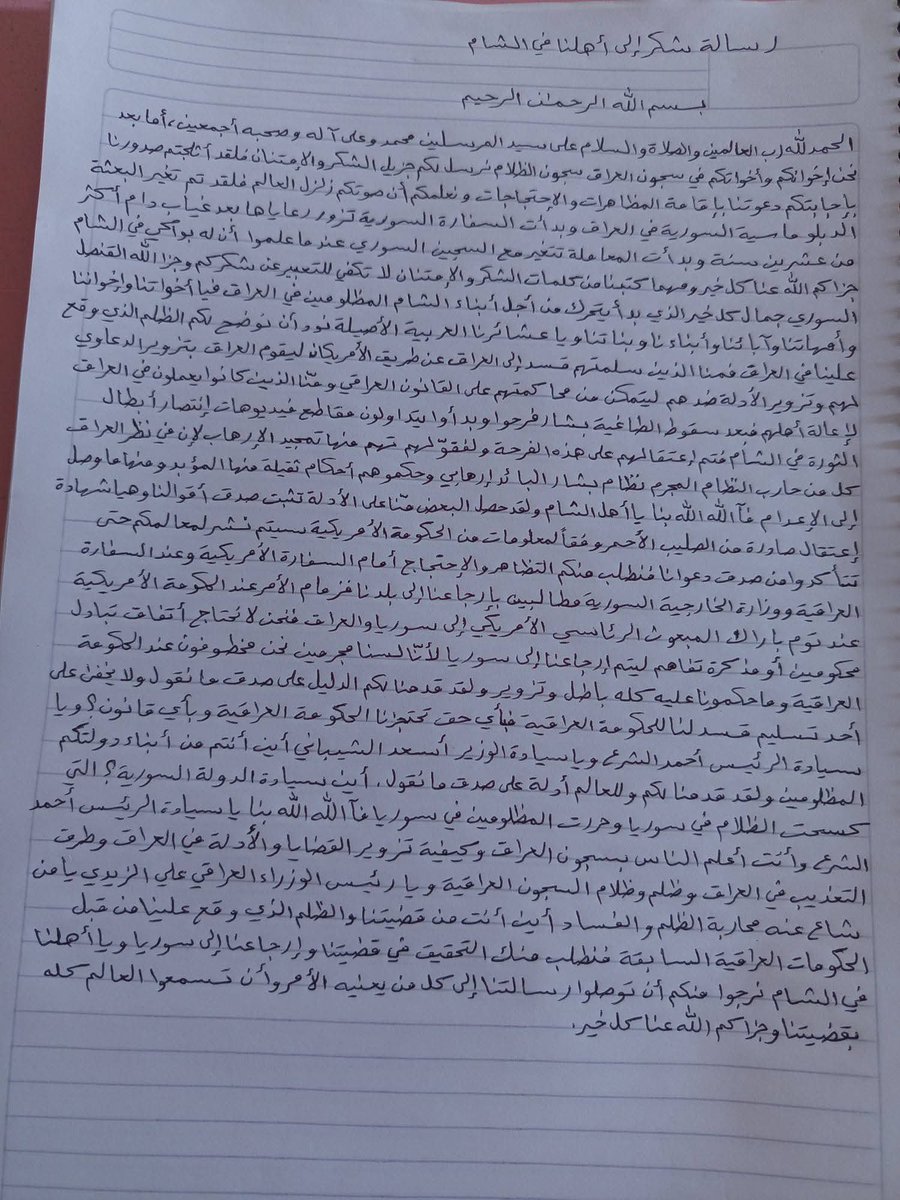 رسالة شكر إلى أهلنا في الشام
بسم الله الرحمن الرحيم
الحمد لله رب العالمين والصلاة والسلام على سيد المرسلين محمد وعلى آله وصحبه أجمعين، أما بعد
نحن إخوانكم وأخواتكم في سجون العراق سجون الظلام نرسل لكم جزيل الشكر والإمتنان فلقد أثلجتم صدورنا
بإجابتكم دعوتنا بإقامة المظاهرات والإحتجاجات ونعلمكم أن صوتكم زلزل العالم فلقد تم تغير البعثة
الدبلوماسية السورية في العراق وبدأت السفارة السورية تزور رعاياها بعد غياب دام أكثر
من عشرين سنة وبدأت المعاملة تتغير مع السجين السوري عندما علموا أن له بواكي في الشام
جزاكم الله عنا كل خير ومهما كتبنا من كلمات الشكر والإمتنان لا تكفي للتعبير عن شكركم وجزا الله القنصل
السوري جمال كل خير الذي بدأ يتحرك من أجل أبناء الشام المظلومين في العراق فيا أخواتنا وإخواننا
وأمهاتنا وآبائنا وأبناءنا وبناتنا ويا عشائرنا العربية الأصيلة نود أن نوضح لكم الظلم الذي وقع
علينا في العراق فمنا الذين سلمتهم قسد إلى العراق عن طريق الأمريكان ليقوم العراق بتزوير الدعاوي
لهم وتزوير الأدلة ضدهم ليتمكن من محاكمتهم على القانون العراقي ومنّا الذين كانوا يعملون في العراق
لإعالة أهلهم فبعد سقوط الطاغية بشار فرحوا وبدأوا يتداولون مقاطع فيديوهات إنتصار أبطال
الثورة في الشام فتم إعتقالهم على هذه الفرحة ولفقوّ لهم تهم منها تمجيد الإرهاب لإن في نظر العراق
كل من حارب النظام المجرم نظام بشار البائد إرهابي وحكموهم أحكام ثقيلة منها المؤبد ومنها ما وصل
إلى الإعدام فآ الله الله بنا يا أهل الشام ولقد حصل البعض منّا على الأدلة تثبت صدق أقوالنا وهيا شهادة
إعتقال صادرة من الصليب الأحمر وفقاً لمعلومات من الحكومة الأمريكية سيتم نشر لمعالمكم حتى
تتأكدوا من صدق دعوانا فنطلب منكم التظاهر والإحتجاج أمام السفارة الأمريكية وعند السفارة
العراقية ووزارة الخارجية السورية مطالبين بإرجاعنا إلى بلدنا فزمام الأمر عند الحكومة الأمريكية
عند توم باراك المبعوث الرئاسي الأمريكي إلى سوريا والعراق فنحن لا نحتاج أتفاق تبادل
محكومين أو مذكرة تفاهم ليتم إرجاعنا إلى سوريا لأنّا لسنا مجرمين نحن مخطوفون عند الحكومة
العراقية وما حكمونا عليه كله باطل وتزوير ولقد قدمنا لكم الدليل على صدق ما نقول ولا يخفئ على
أحد تسليم قسد لنا للحكومة العراقية فبأي حق تحتجزنا الحكومة العراقية وبأي قانون؟ ويا
سيادة الرئيس أحمد الشرع ويا سيادة الوزير أسعد الشيباني أين أنتم من أبناء دولتكم
المظلومين ولقد قدمنا لكم وللعالم أدلة على صدق ما نقول. أين سيادة الدولة السورية؟ التي
كسحت الظلام في سوريا وحررت المظلومين في سوريا فآ الله الله بنا يا سيادة الرئيس أحمد
الشرع وأنت أعلم الناس بسجون العراق وكيفية تزوير القضايا والأدلة في العراق وطرق
التعذيب في العراق وظلم وظلام السجون العراقية ويا رئيس الوزراء العراقي علي الزيدي يا من
شاع عنه محاربة الظلم والفساد أين أنت من قضيتنا والظلم الذي وقع علينا من قبل
الحكومات العراقية السابقة فنطلب منك التحقيق في قضيتنا وإرجاعنا إلى سوريا ويا أهلنا
في الشام نرجوا منكم أن توصلوا رسالتنا إلى كل من يعنيه الأمر وأن تسمعوا العالم كله
بقضيتنا وجزاكم الله عنا كل خير.